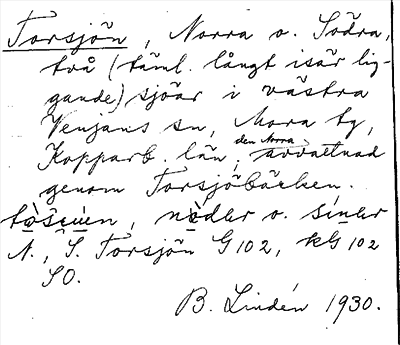 Torsjön, Norra o. Södra,
två (täml. långt isär lig-
gande) sjöar i västra
Venjans sn, Mora tg,
Kopparb. län, den Norra avvattnad
genom Torsjöbäcken.
nòdər o. sinər
N., S. Torsjön G 102, kG 102
SO.
B. Lindén 1930.